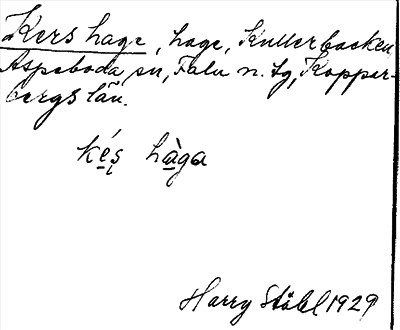 Kers hage, hage, Kullerbacken
Aspeboda sn, Falu n. tg, Kopper-
bergs län.
kẹ́ṣ hạ̀ga
Harry Ståhl 1929